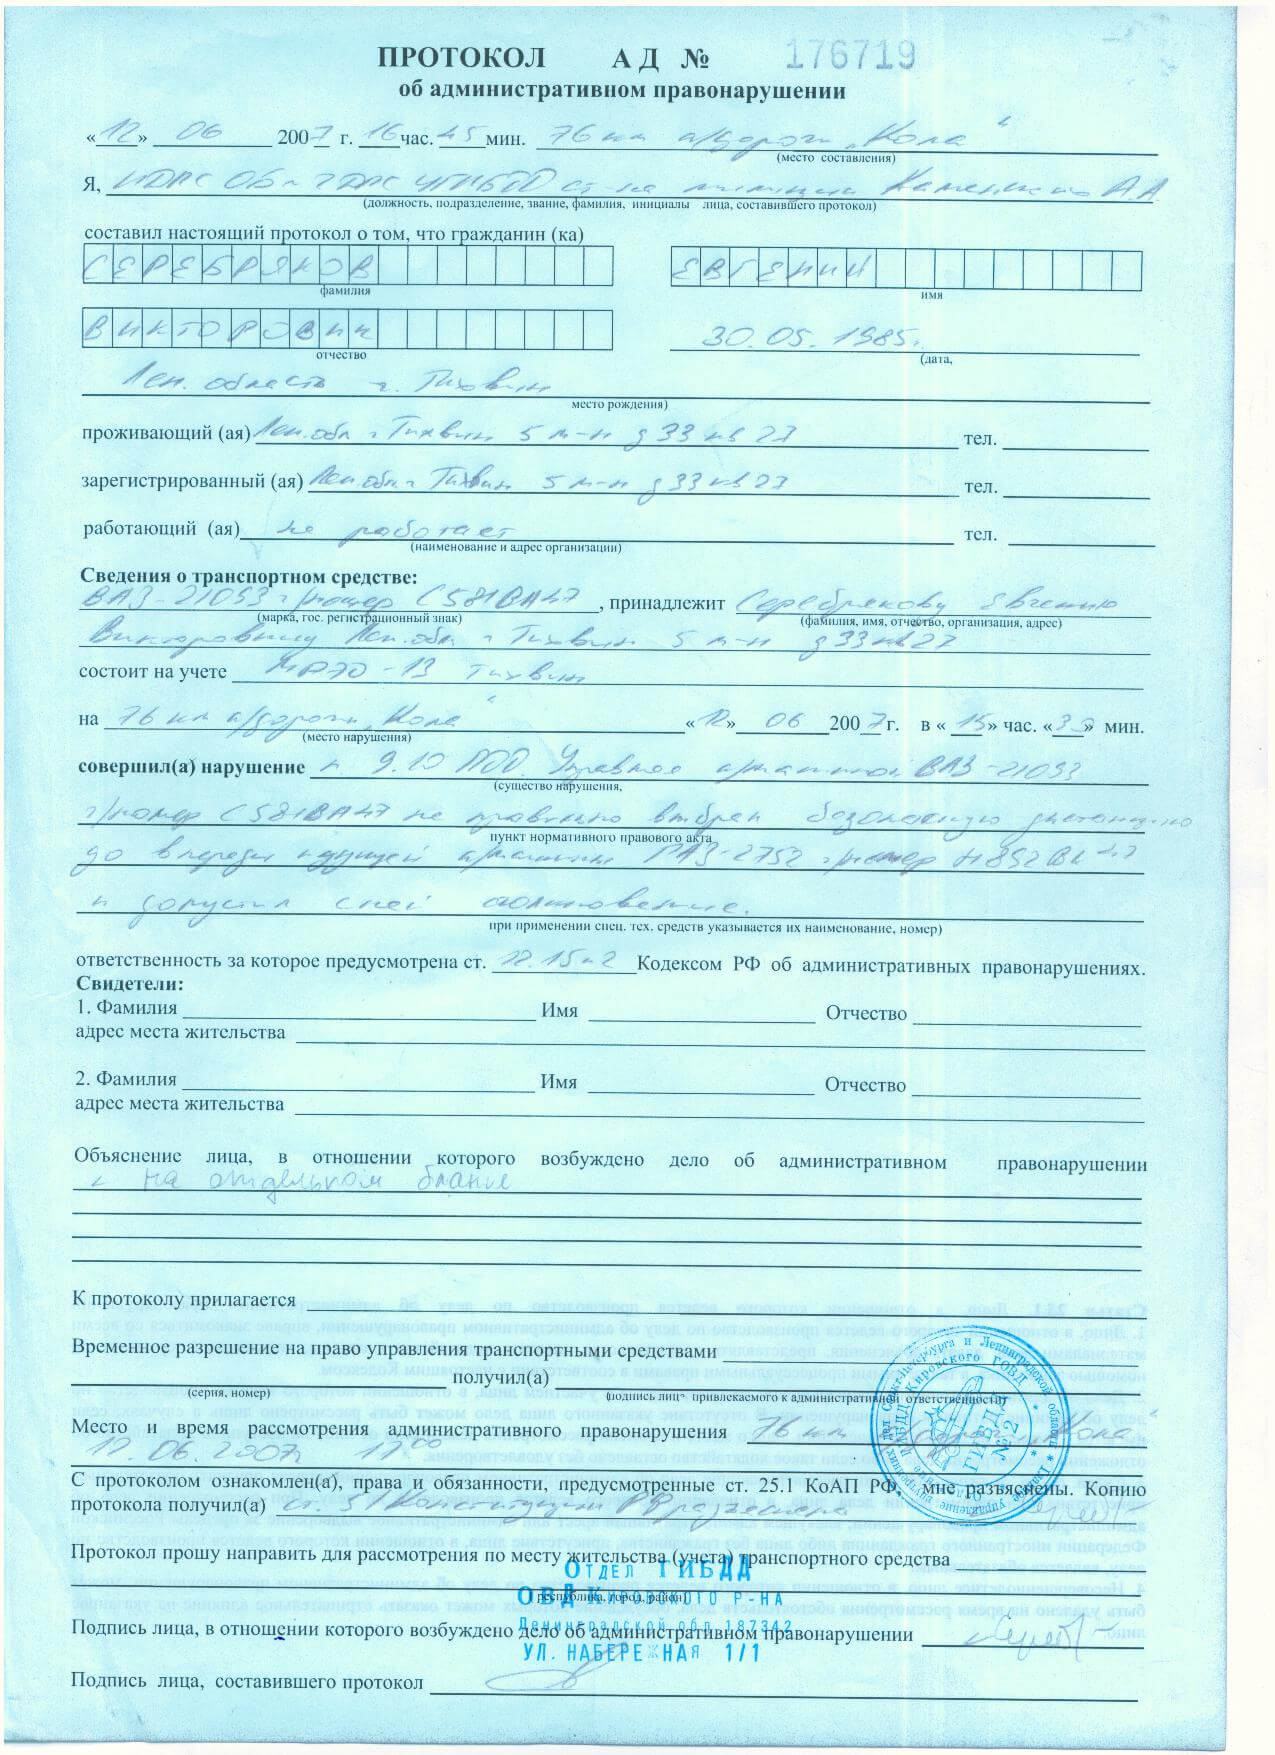 ПРОТОКОЛ АД № 176719
об административном правонарушении
«12» 06 2007 г. 16 час. 45 мин. 76 км а/дороги „Кола“
(место составления)
Я, ИДПС ОБ ДПС УГИБДД ст-на милиции А.А
(должность, подразделение, звание, фамилия, инициалы лица, составившего протокол)
составил настоящий протокол о том, что гражданин (ка)
СЕРЕБРЯКОВ ЕВГЕНИЙ
фамилия имя
ВИКТОРОВИЧ 30.05.1985г.
отчество (дата,
Лен. область г. Тихвин
место рождения)
проживающий (ая) Лен.обл г Тихвин 5 м-н д 33 кв 27 тел.
зарегистрированный (ая) Лен.обл г Тихвин 5 м-н д 33 кв 27 тел.
работающий (ая) не работает тел.
(наименование и адрес организации)
Сведения о транспортном средстве:
ВАЗ-21093 г/номер С581ВА47, принадлежит Серебрякову Евгению
(марка, гос. регистрационный знак) (фамилия, имя, отчество, организация, адрес)
Викторовичу Лен.обл г Тихвин 5 м-н д 33 кв 27
состоит на учете МРЭО-13 Тихвин
на 76 км а/дороги „Кола“ «12» 06 2007г. в «15» час. «30» мин.
(место нарушения)
совершил(а) нарушение п 9.10 ПДД. Управляя а/машиной ВАЗ-21093
(существо нарушения,
г/номер С581ВА47 не правильно выбрал безопасную дистанцию
пункт нормативного правового акта
до впереди идущей а/машины ГАЗ-2752 г/номер Н852ВК47
и допустил с ней столкновение.
при применении спец. тех. средств указывается их наименование, номер)
ответственность за которое предусмотрена ст. 12.15 ч 2 Кодексом РФ об административных правонарушениях.
Свидетели:
1. Фамилия Имя Отчество
адрес места жительства
2. Фамилия Имя Отчество
адрес места жительства
Объяснение лица, в отношении которого возбуждено дело об административном правонарушении
на отдельном бланке
К протоколу прилагается
Временное разрешение на право управления транспортными средствами
получил(а)
(серия, номер) (подпись лица привлекаемого к административной ответственности)
Место и время рассмотрения административного правонарушения 76 км а/дороги „Кола“
12.06.2007г 17 00
С протоколом ознакомлен(а), права и обязанности, предусмотренные ст. 25.1 КоАП РФ, мне разъяснены. Копию
протокола получил(а) ст. 51 Конституции РФ разъяснена
Протокол прошу направить для рассмотрения по месту жительства (учета) транспортного средства
ОТДЕЛ ГИБДД
республика, город, район)
ОВД КИРОВСКОГО Р-НА
Ленинградской обл 187342
Подпись лица, в отношении которого возбуждено дело об административном правонарушении
УЛ. НАБЕРЕЖНАЯ 1/1
Подпись лица, составившего протокол
ГИБДД
№ 2